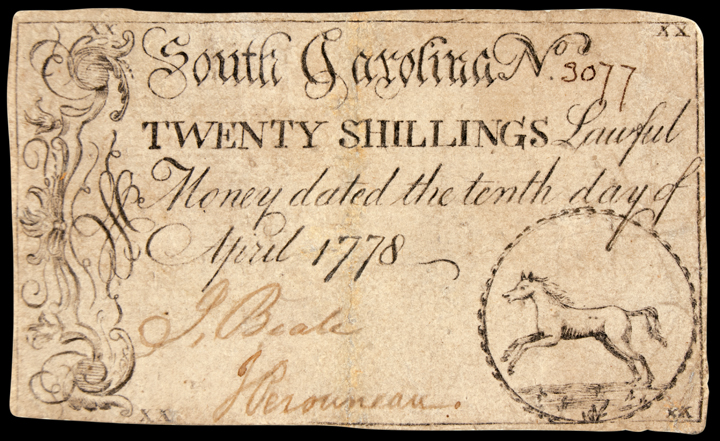 XX XX
South Carolina No. 3077
TWENTY SHILLINGS Lawful
Money dated the tenth day of
April 1778
J, Beale
H Perouneau.
XX XX